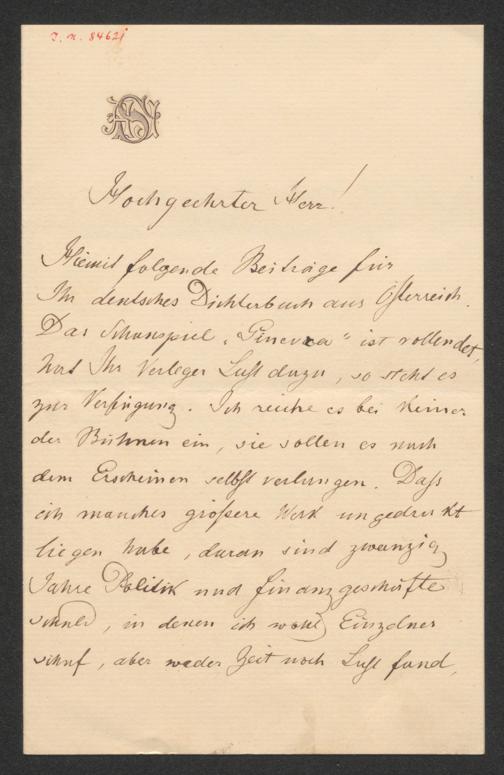 J. N. 84621
Hochgeehrter Herr!
Hiemit folgende Beiträge für
Ihr deutsches Dichterbuch aus Österreich.
Das Schauspiel „Ginevra“ ist vollendet,
hat Ihr Verleger Lust dazu, so steht es
zur Verfügung. Ich reiche es bei keiner
der Bühnen ein, sie sollen es nach
dem Erscheinen selbst verlangen. Daß
ich manches größere Werk ungedruckt
liegen habe, daran sind zwanzig
Jahre Politik und Finanzgeschäfte
schuld, in denen ich wohl Einzelnes
schuf, aber weder Zeit noch Lust fand,